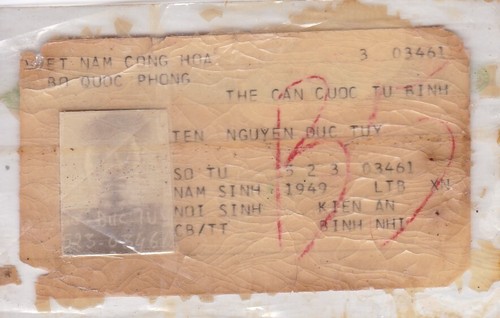 VIET NAM CONG HOA 3 03461
BO QUOC PHONG
THE CAN CUOC TU BINH
TEN NGUYEN DUC TUY
SO TU 5 2 3 03461
NAM SINH 1949 LTB XN
NOI SINH KIEN AN
CB/TT BINH NHI
DUC TU